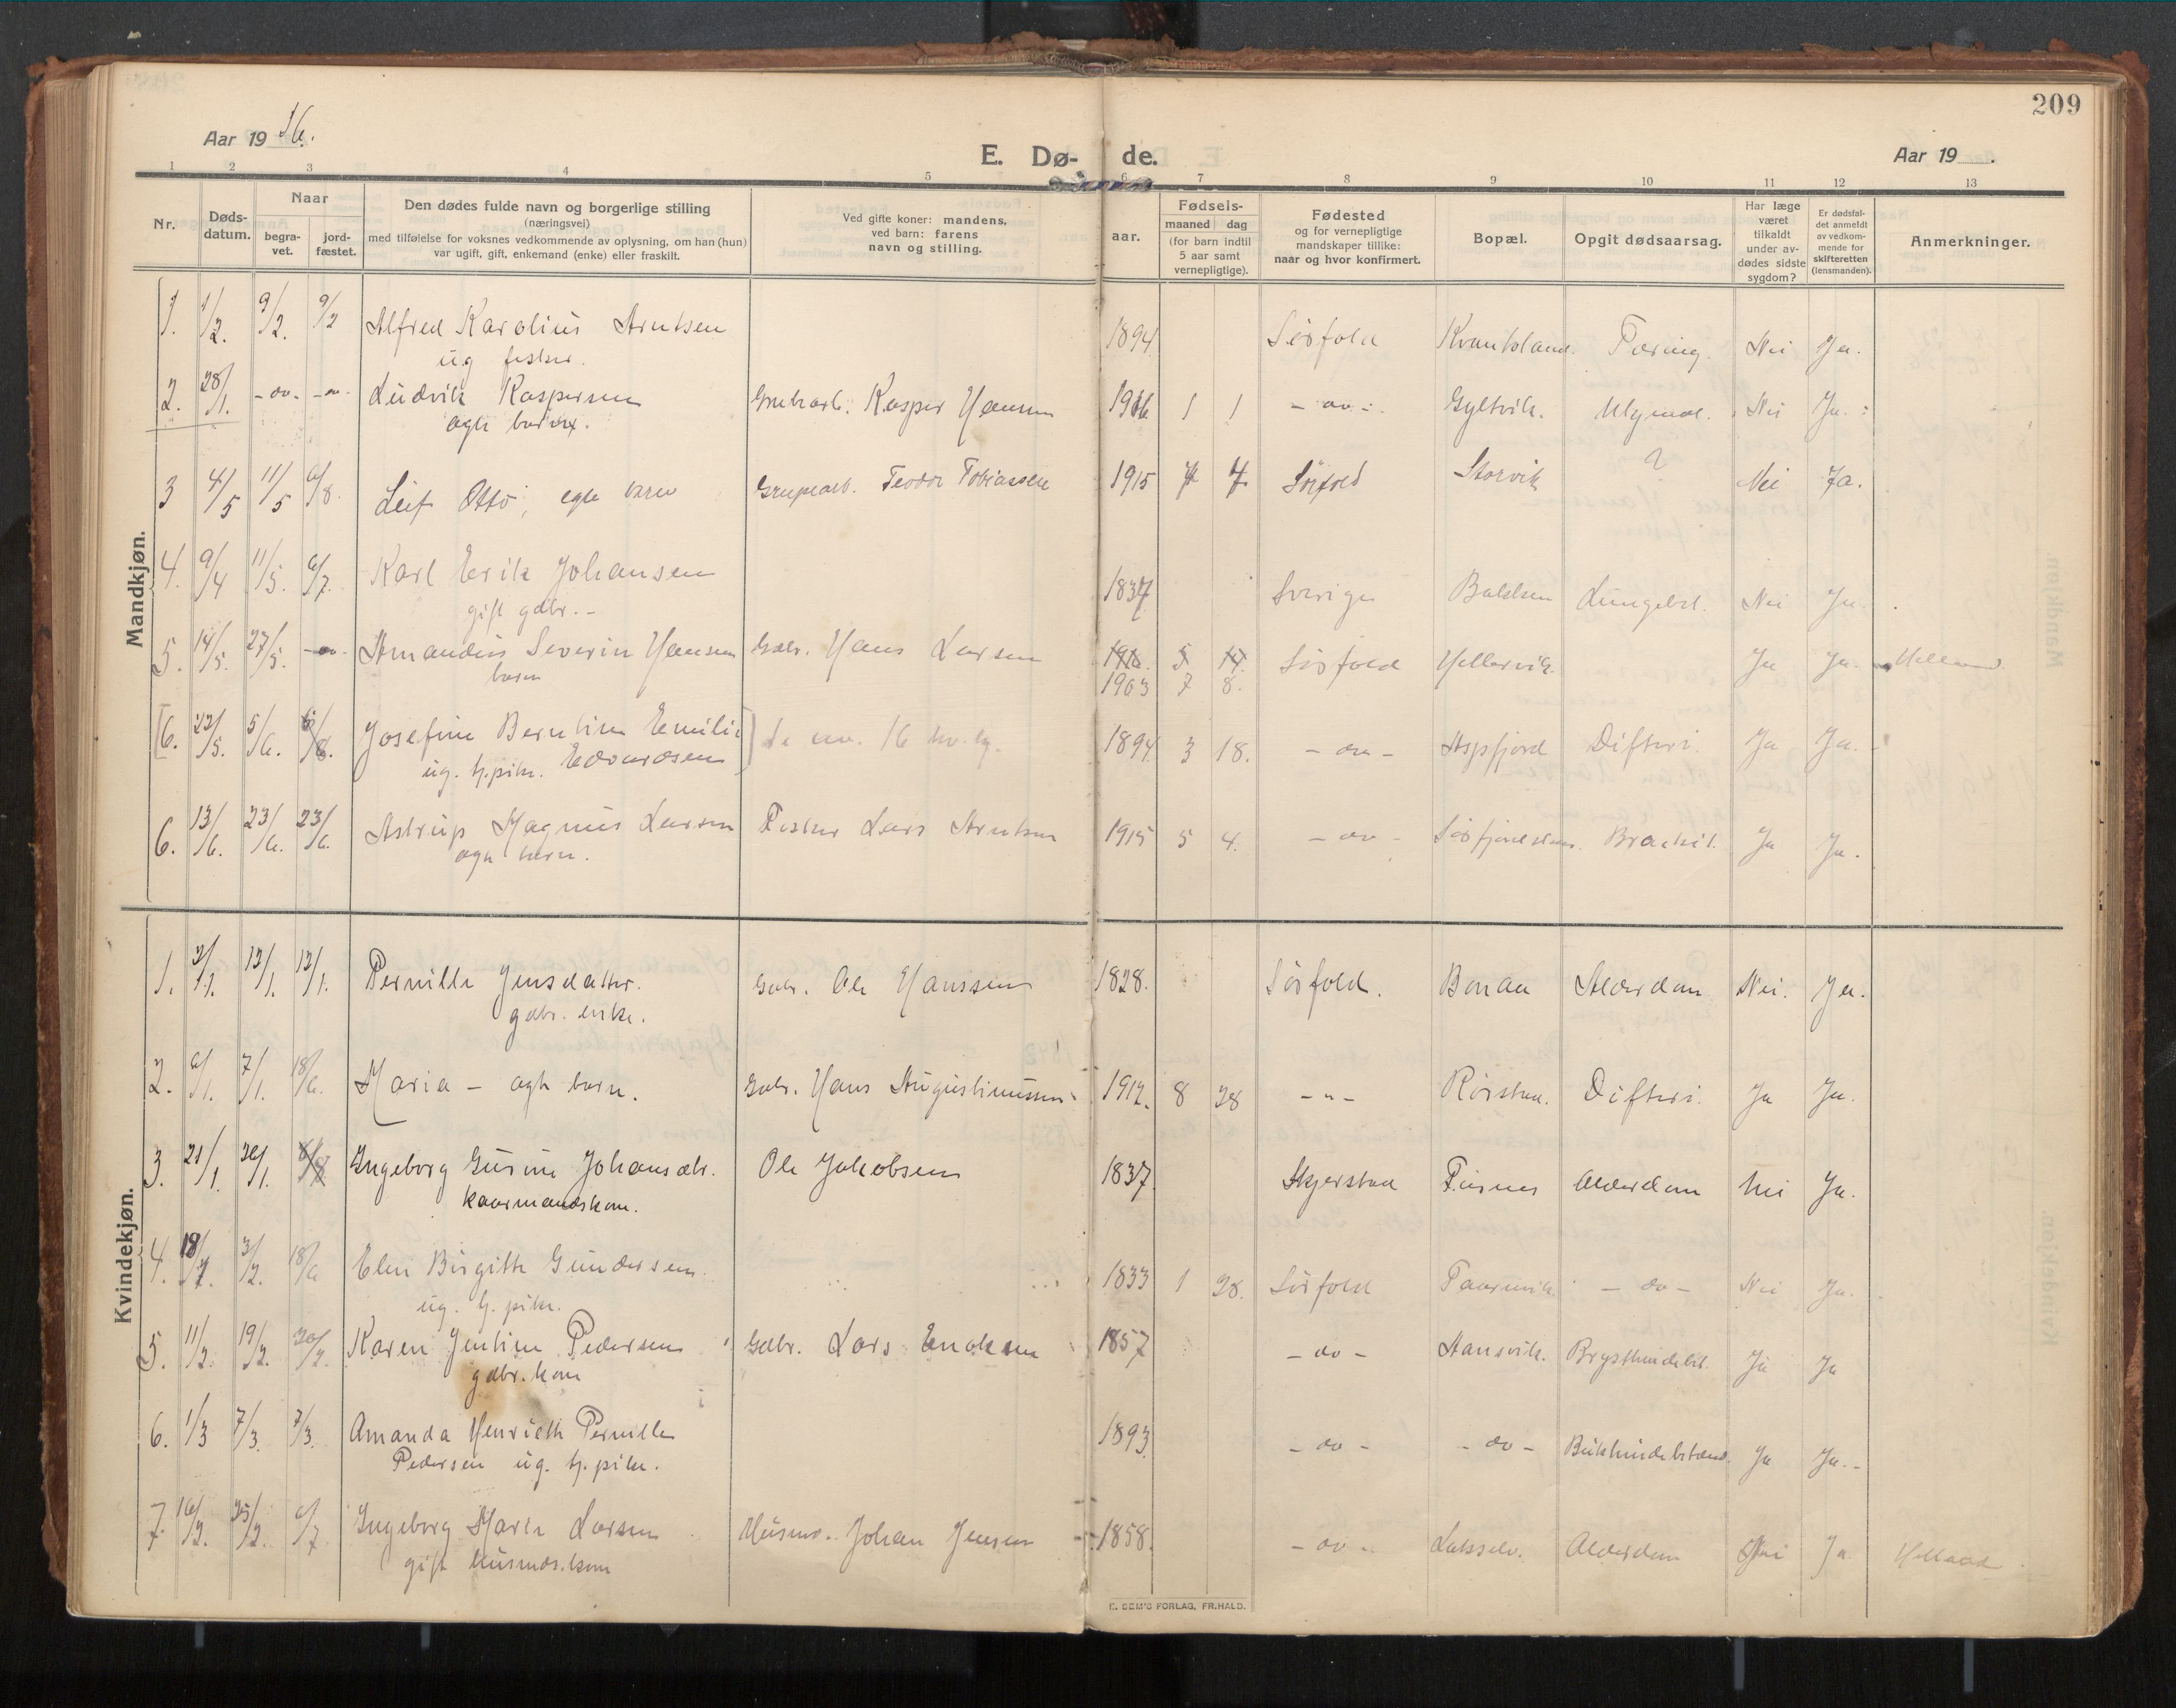 209
Aar 19 16.
E. Dø- de.
Aar 19 .
1 2 3 4 5 6 7 8 9 10 11 12 13
Nr.
Døds-
datum.
Naar
begra-
vet.
jord-
fæstet.
Den dødes fulde navn og borgerlige stilling
(næringsvei)
med tilføielse for voksnes vedkommende av oplysning, om han (hun)
var ugift, gift, enkemand (enke) eller fraskilt.
Ved gifte koner: mandens,
ved barn: farens
navn og stilling.
Fødsels-
aar.
maaned dag
(for barn indtil
5 aar samt
vernepligtige).
Fødested
og for vernepligtige
mandskaper tillike:
naar og hvor konfirmert.
Bopæl.
Opgit dødsaarsag.
Har læge
været
tilkaldt
under av-
dødes sidste
sygdom?
Er dødsfal-
det anmeldt
av vedkom-
mende for
skifteretten
(lensmanden).
Anmerkninger.
Mandkjøn.
1. 1/2. 9/2. 9/2 Alfred Karolius Arntsen 1894. Sörfold Nei Ja.
ug fisker.
2. 28/1. -do- -do- Ludvik Kaspersen Grubearb. Kasper Hansen 1916 1 1 -do- Gyltvik. Nei Ja.
ægte barn.
3 4/5 11/5 6/8. Leif Otto, egte barn Grubearb. Teodor Tobiassen 1915 7 Sörfold Storvik ? Nei Ja.
4. 9/4 11/5. 6/7. Karl Erik Johansen 1837 Sverige Lungebet. Nei Ja.
gift gdbr. -
5. 14/5. 27/5. -do- Amandus Severin Hansen Gdbr. Hans Larsen 1916. 5 14. Sörfold Hellarvik. Ja Ja.
barn 1903 7 8.
[6. 23/5. 5/6. 6/8. Josefine Berntine Emilie 1894 3 18. -do- Aspfjord Difteri. Ja Ja.
ug. tj.pike. Edvardsen]
6. 13/6. 23/6. 23/6. Astrup Magnus Larsen Fisker Lars Arntsen 1915 5 4. -do- Ja Ja.
ægte barn.
Kvindekjøn.
1. 12/1. 12/1. Pernille Jensdatter. Gdbr. Ole Hanssen 1828. Sörfold. Bonaa Alderdom Nei. Ja.
gdbr. enke.
2. 6/1. 7/1. 18/6. Maria - ægte barn. Gdbr. Hans Augustinussen 1912. 8 28 -"- Rörstad. Difteri. Ja Ja.
3. 21/1. 6/8. Ingeborg Gurine Johansdtr. Ole Jakobsen 1837. Skjerstad Alderdom Nei Ja.
kaarmandskone.
4. 3/2. 18/6 Elen Birgitte Gundersen. 1833 1 28. Sörfold -do- Nei Ja.
ug. tj. pike.
5. 11/2. 19/2. 20/2. Karen Jentine Pedersen Gdbr. Lars Enoksen 1857 -do- Hansvik. Ja Ja
gdbr. kone
6. 1/3 7/3. 7/3. Amanda Henriette Pernille 1893. -do- -do- Bukhindebetænd. Ja Ja.-
Pedersen ug. tj. pike.
7. 16/2. 25/2. 6/7. Ingeborg Marie Larsen Husmd. Johan Jensen 1858. -do- Lakselv. Alderdom Nei Ja
gift husmds.kone
E. SEM'S FORLAG, FR.HALD.